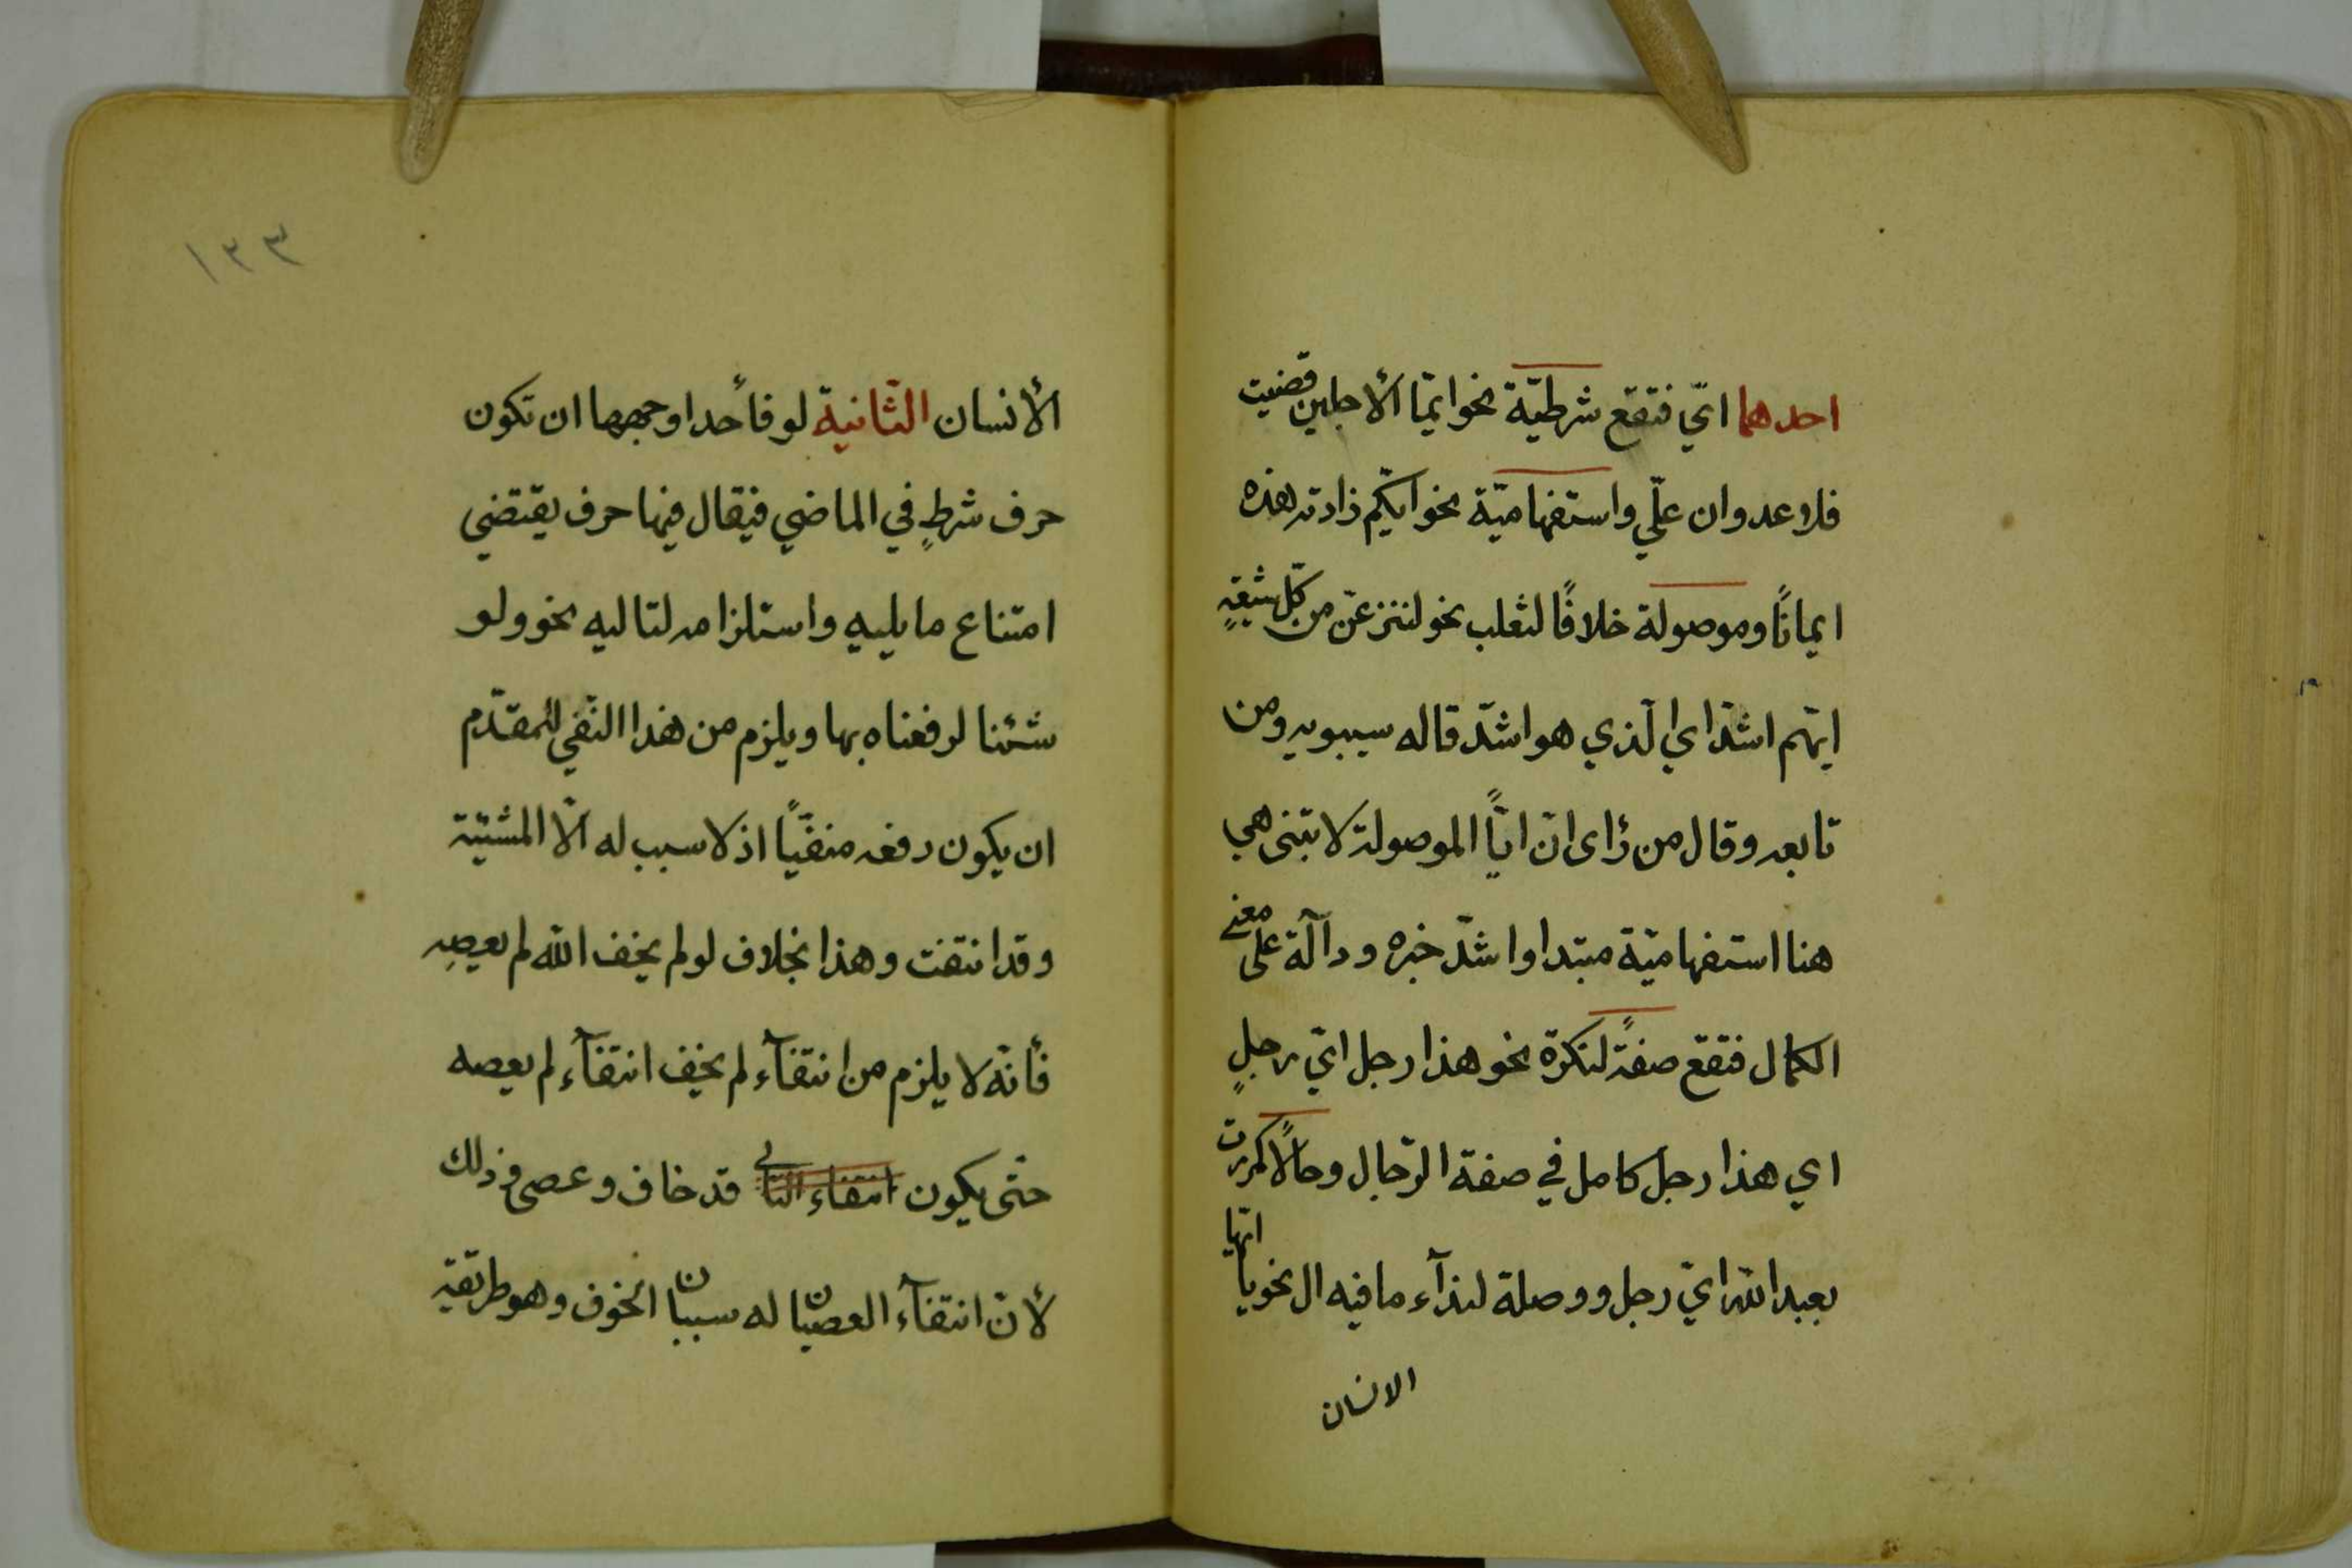 احدهما ايّ فتقع شرطيّة نحو ايّما الأجلين قضيت
فلا عدوان عليّ واستفهاميّة نحو ايّكم زادته هذه
ايمانًا وموصولة خلافًا لثعلب نحو لننزعنّ من كلّ شيعةٍ
ايّهم اشدّ اي الّذي هو اشدّ قاله سيبويه ومن
تابعه وقال من رأى انّ ايًّا الموصولة لا تبنى هي
هنا استفهاميّة مبتدا واشدّ خبره ودآلّة على معنى
الكمال فتقع صفةً لنكرة نحو هذا رجل ايّ رجلٍ
اي هذا رجل كامل في صفة الرّجال وحالًا كمررت
بعبد اللّه ايّ رجل ووصلة لندآء ما فيه ال نحو يا ايّها
الانسان
١٣٣
الأنسان الثّانية لو فأحد اوجهها ان تكون
حرف شرطٍ في الماضي فيقال فيها حرف يقتضي
امتناع ما يليه واستلزامه لتاليه نحو ولو
شئنا لرفعناه بها ويلزم من هذا النّفي للمقدّم
ان يكون رفعه منفيًّا اذ لا سبب له الّا المشيّة
وقد انتفت وهذا بخلاف لو لم يخف اللّه لم يعصِه
فأنّه لا يلزم من انتفآء لم يخف انتفآء لم يعصه
حتّى يكون انتفاء التالي قد خاف وعصى وذلك
لأنّ انتفآء العصيان له سببان الخوف وهو طريقة